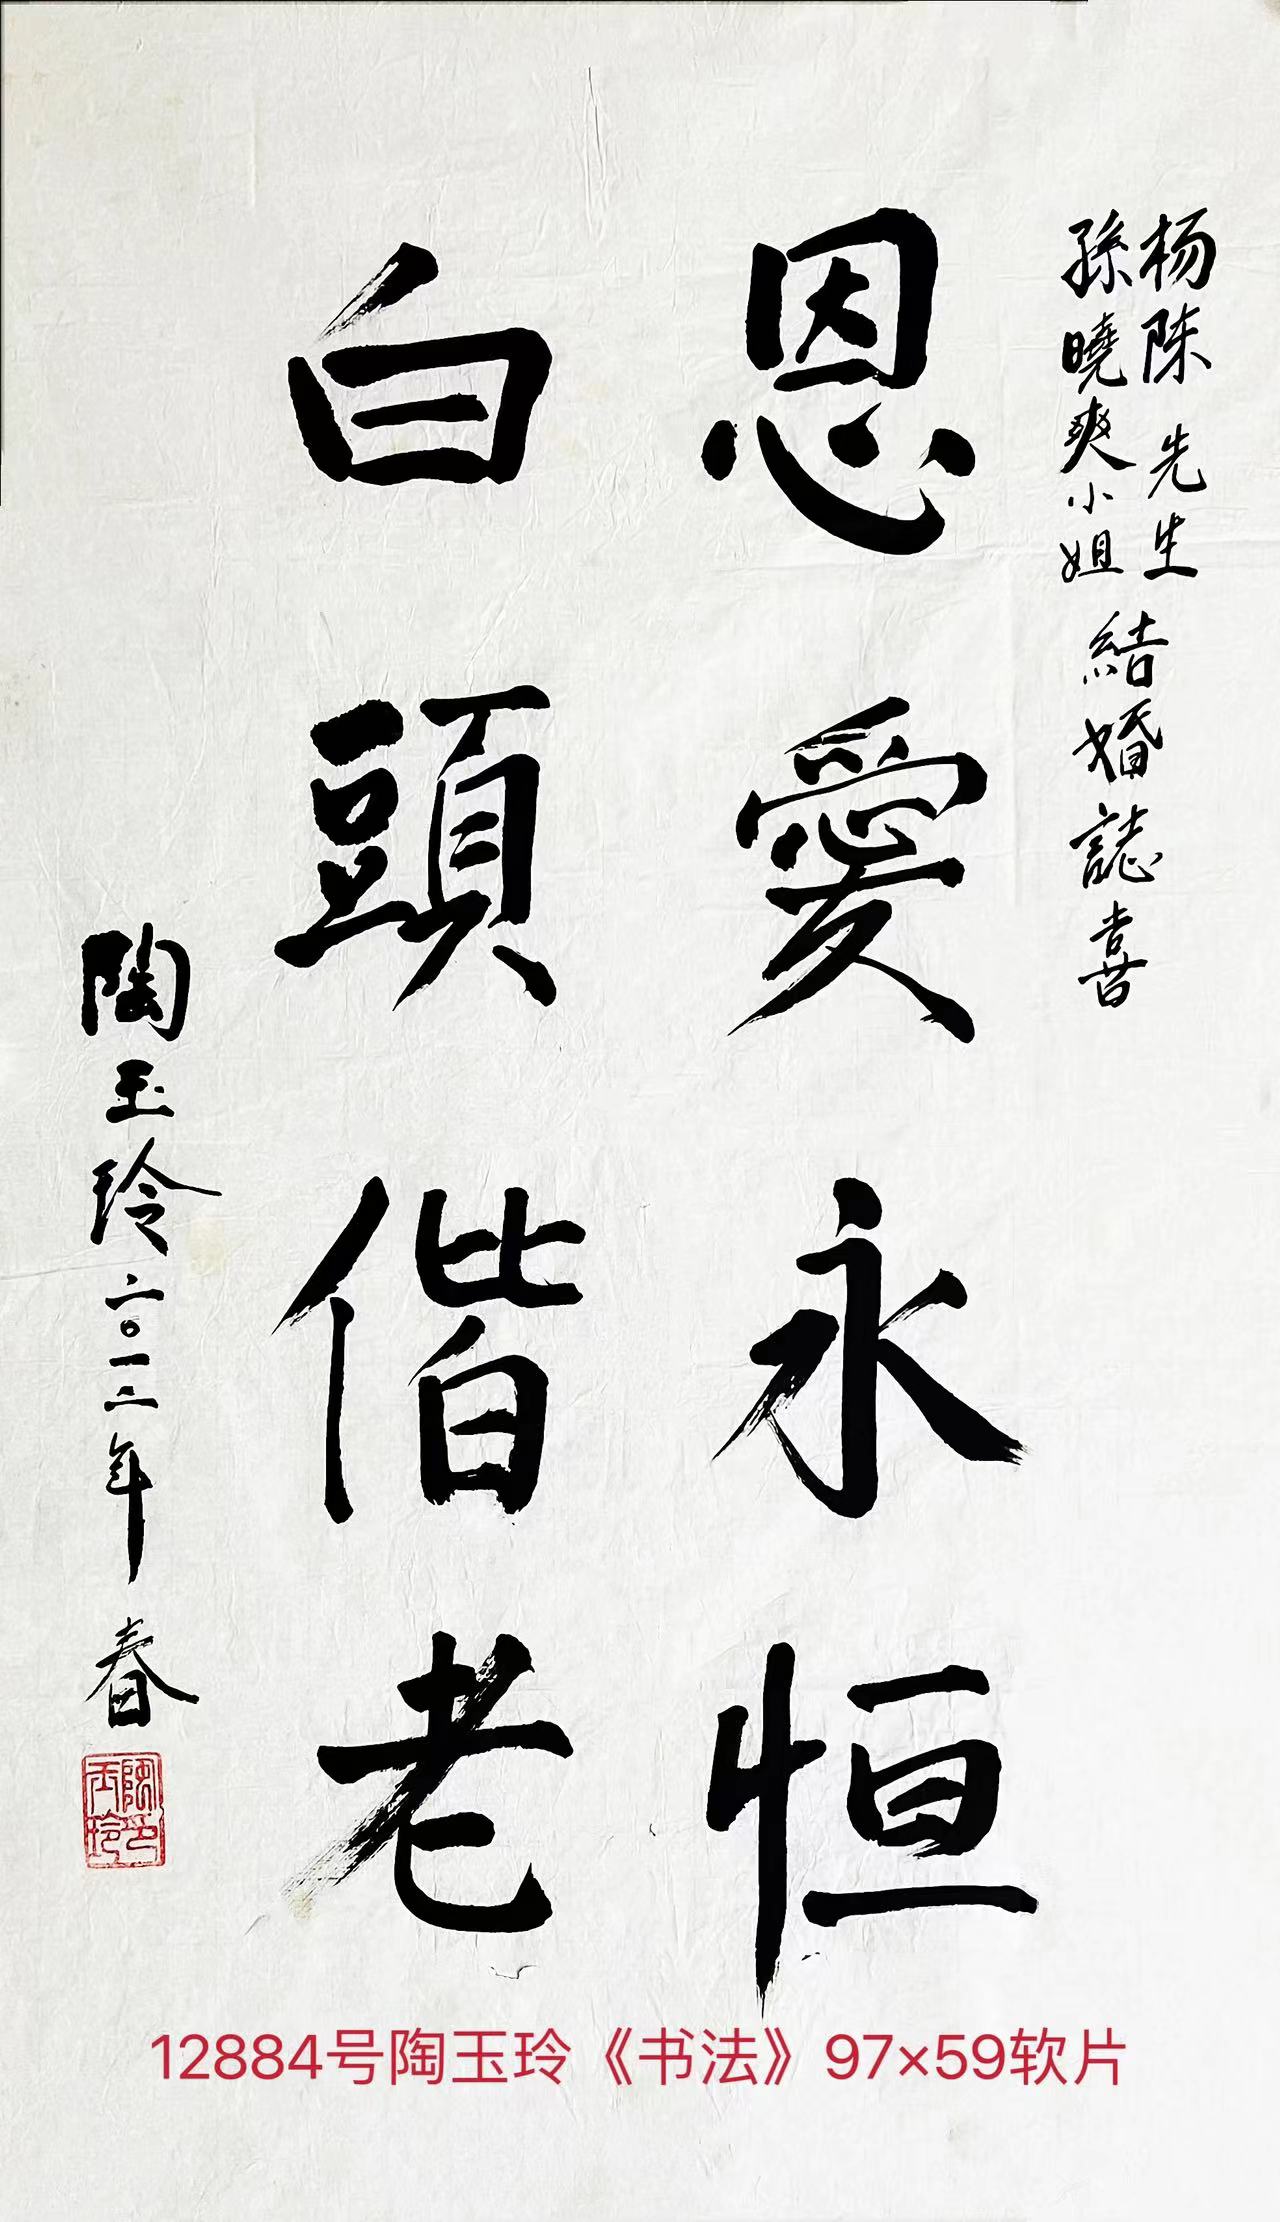 杨陈先生
孫曉爽小姐
結婚誌喜
恩愛永恒
白頭偕老
陶玉玲二〇一二年春
陶玉玲印
12884号陶玉玲《书法》97×59软片